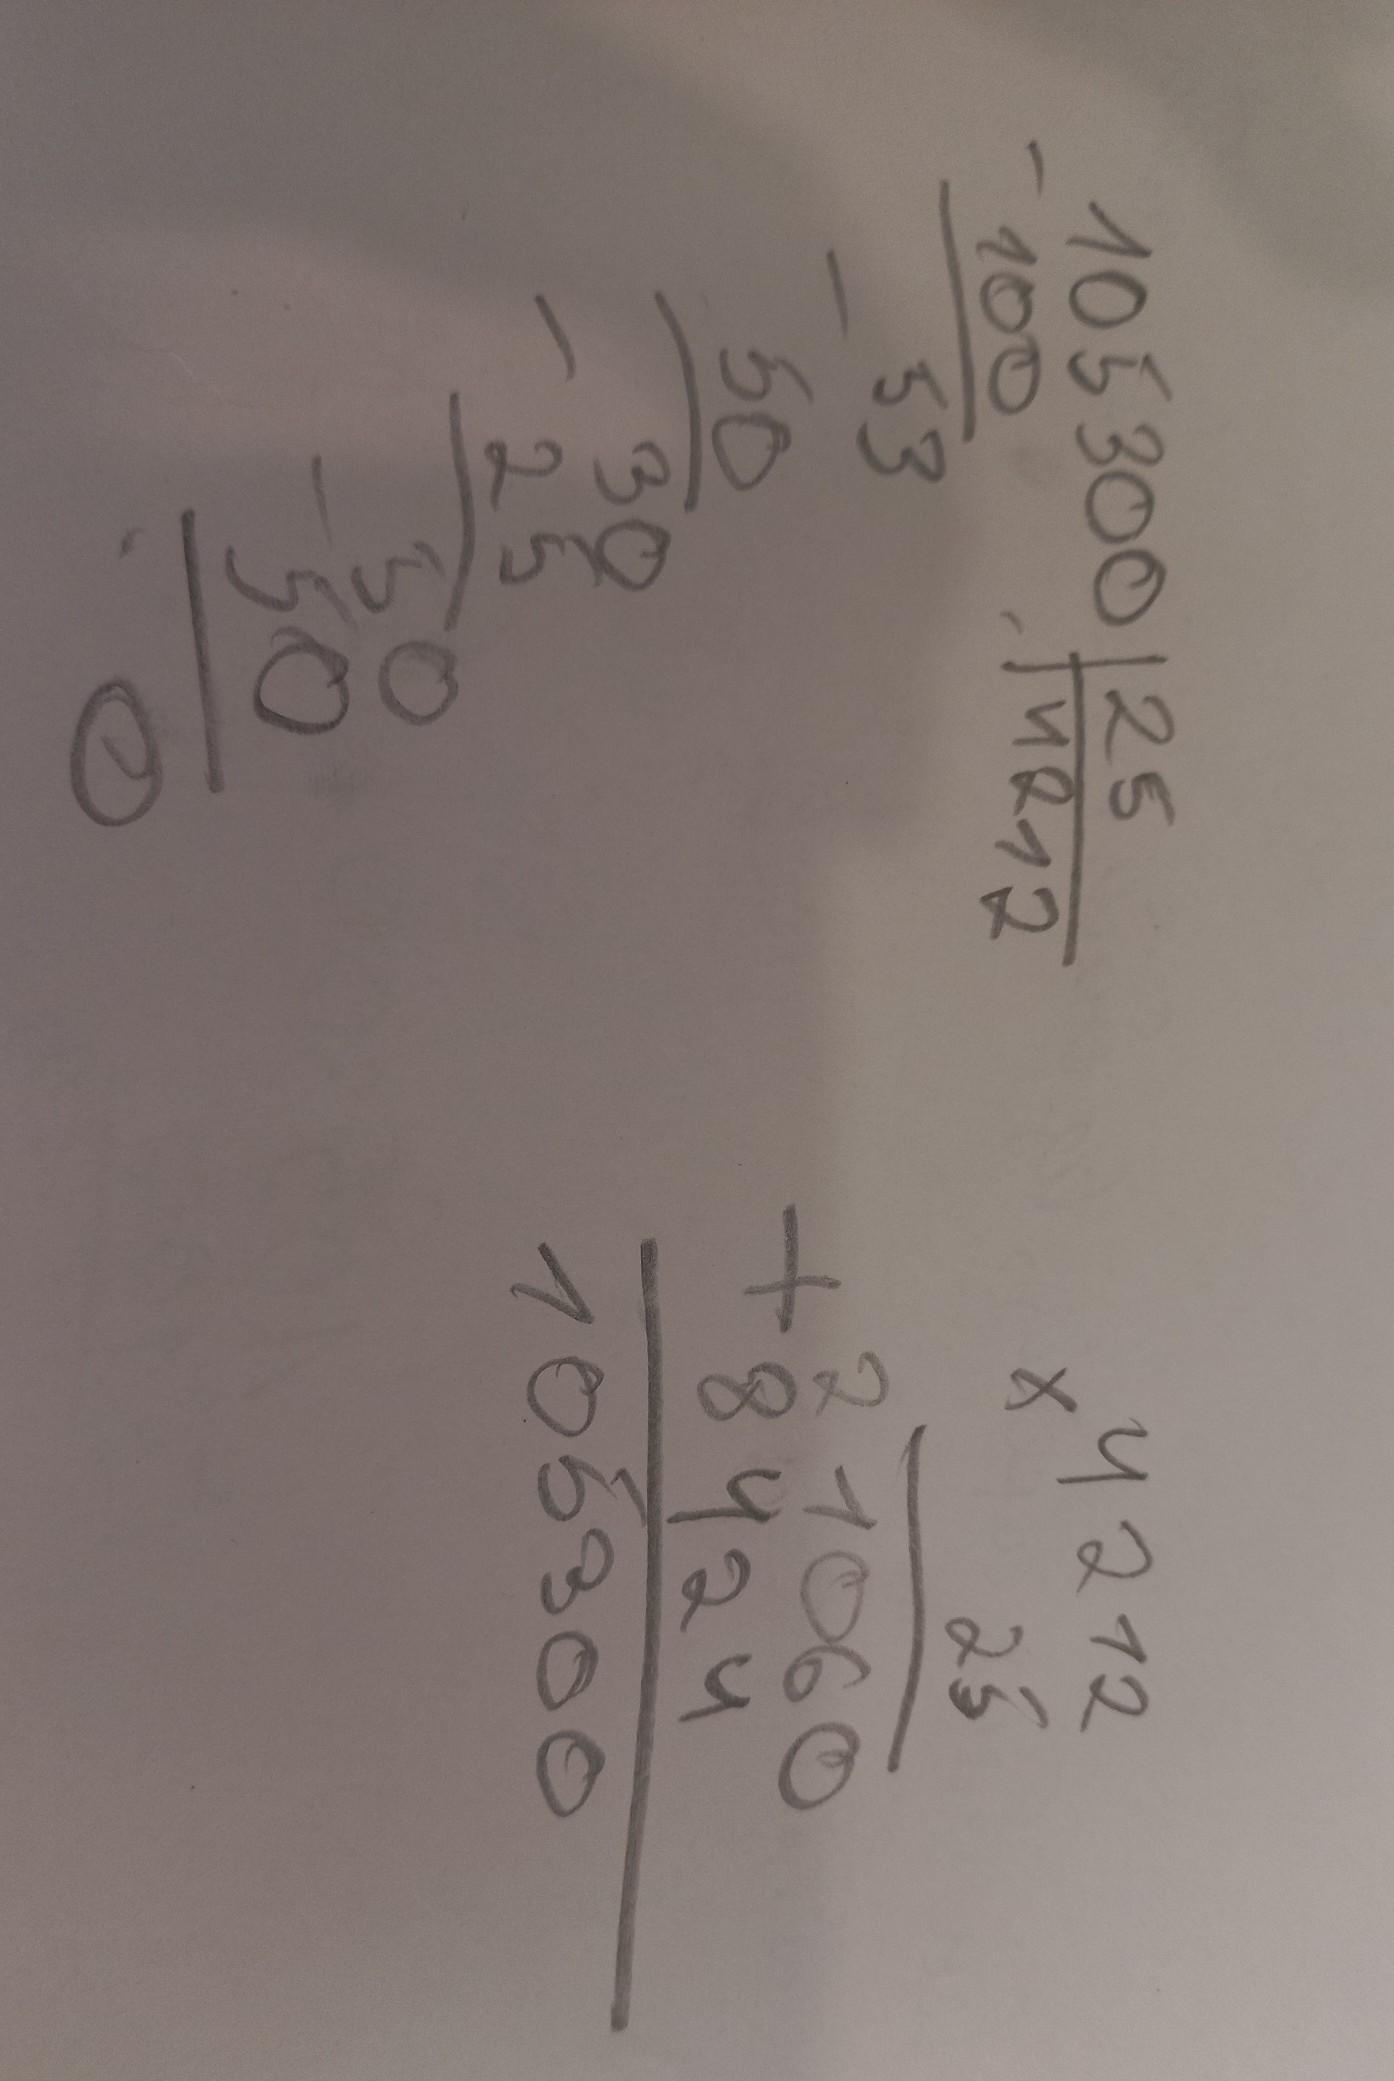 105300 | 25
- 100 | 4212
- 53
50
30
- 25
50
- 50
0
4212
x 25
21060
+ 8424
105300